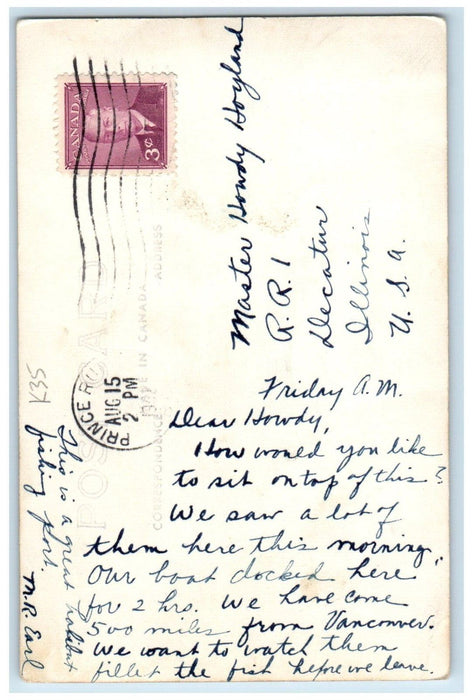 CANADA
3¢
POST CARD
MADE IN CANADA
ADDRESS
CORRESPONDENCE
PRINCE R
AUG 15
2 PM
Master Howdy Hoyland
R.R. 1
Decatur
Illinois
U.S.A.
K35
Friday A.M.
Dear Howdy,
How would you like
to sit on top of this?
We saw a lot of
them here this morning.
Our boat docked here
for 2 hrs. We have come
500 miles from Vancouver.
We want to watch them
fillet the fish before we leave.
This is a great halibut
fishing port.
M.R. Earl